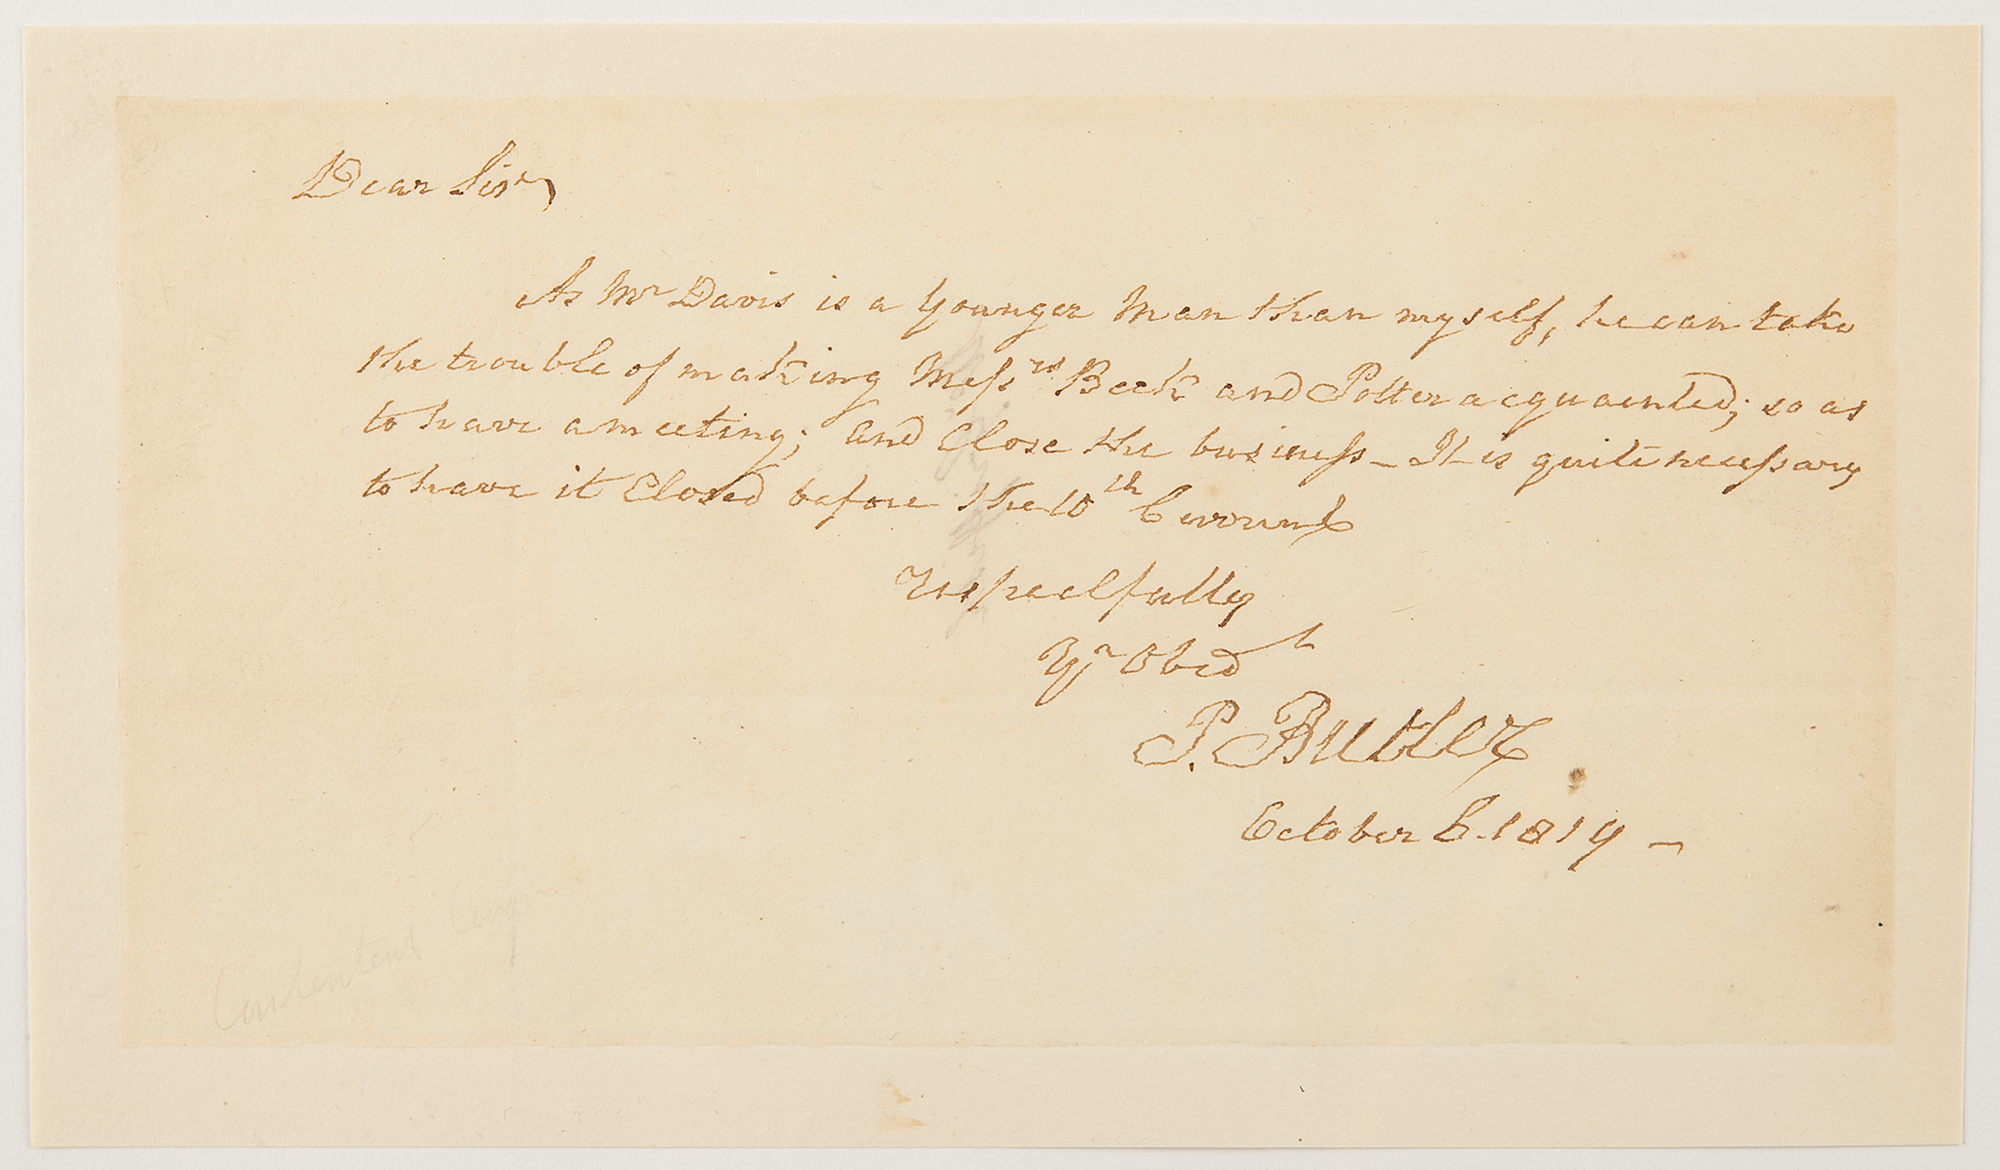 Dear Sir,
As Mr Davis is a Younger Man than myself, he can take
the trouble of making Messrs Beck and Potter acquaented; so as
to have a meeting; and Close the business_ It is quite necessary
to have it Closed before the 10th Currunt
respectfully
Yr Obedt
P. Butler
October 6. 1819 _
Continental Congress